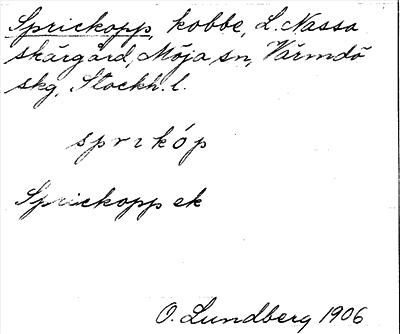 Sprickopp, kobbe, L. Nassa
skärgård, Möja sn, Värmdö
skg, Stockh. l.
sprɩkóp
Sprickopp ek
O. Lundberg 1906